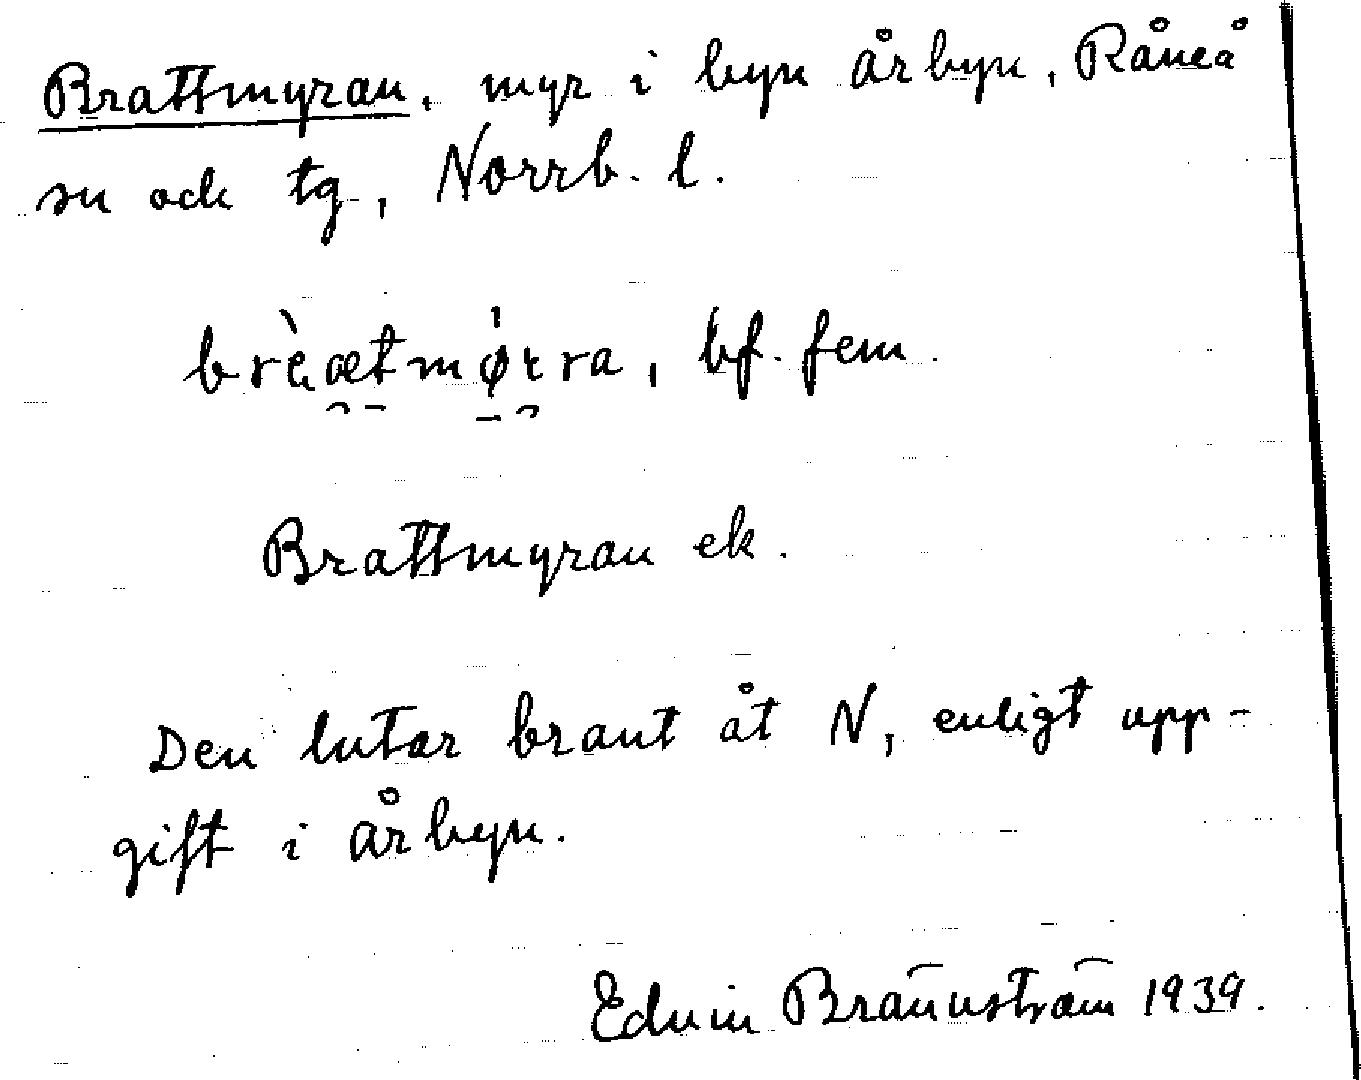 Brattmyran, myr i byn Årbyn, Råneå
sn ock tg, Norrb. l.
brèætmørra, bf. fem.
Brattmyran ek.
Den lutar brant åt N, enligt upp-
gift i Årbyn.
Edvin Brännström 1939.